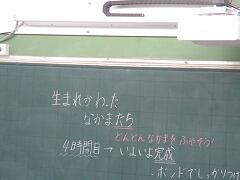 生まれかわった
なかまたち
どんどんなかまをふやそう!
4時間目→いよいよ完成
・ボンドでしっかりつけ